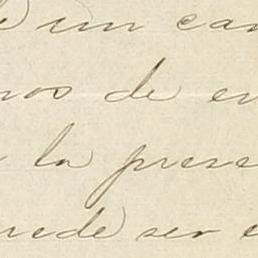 un can
nos de en
la prese
uede ser e